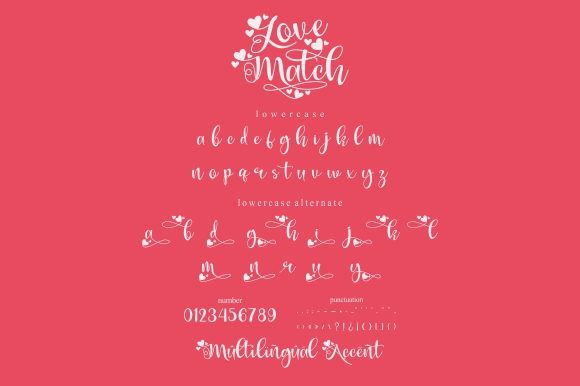 Love
Match
lowercase
a b c d e f g h i j k l m
n o p q r s t u v w x y z
lowercase alternate
a b d g h i j k l
m n r u y
number
0123456789
punctuation
Multilingual Accent